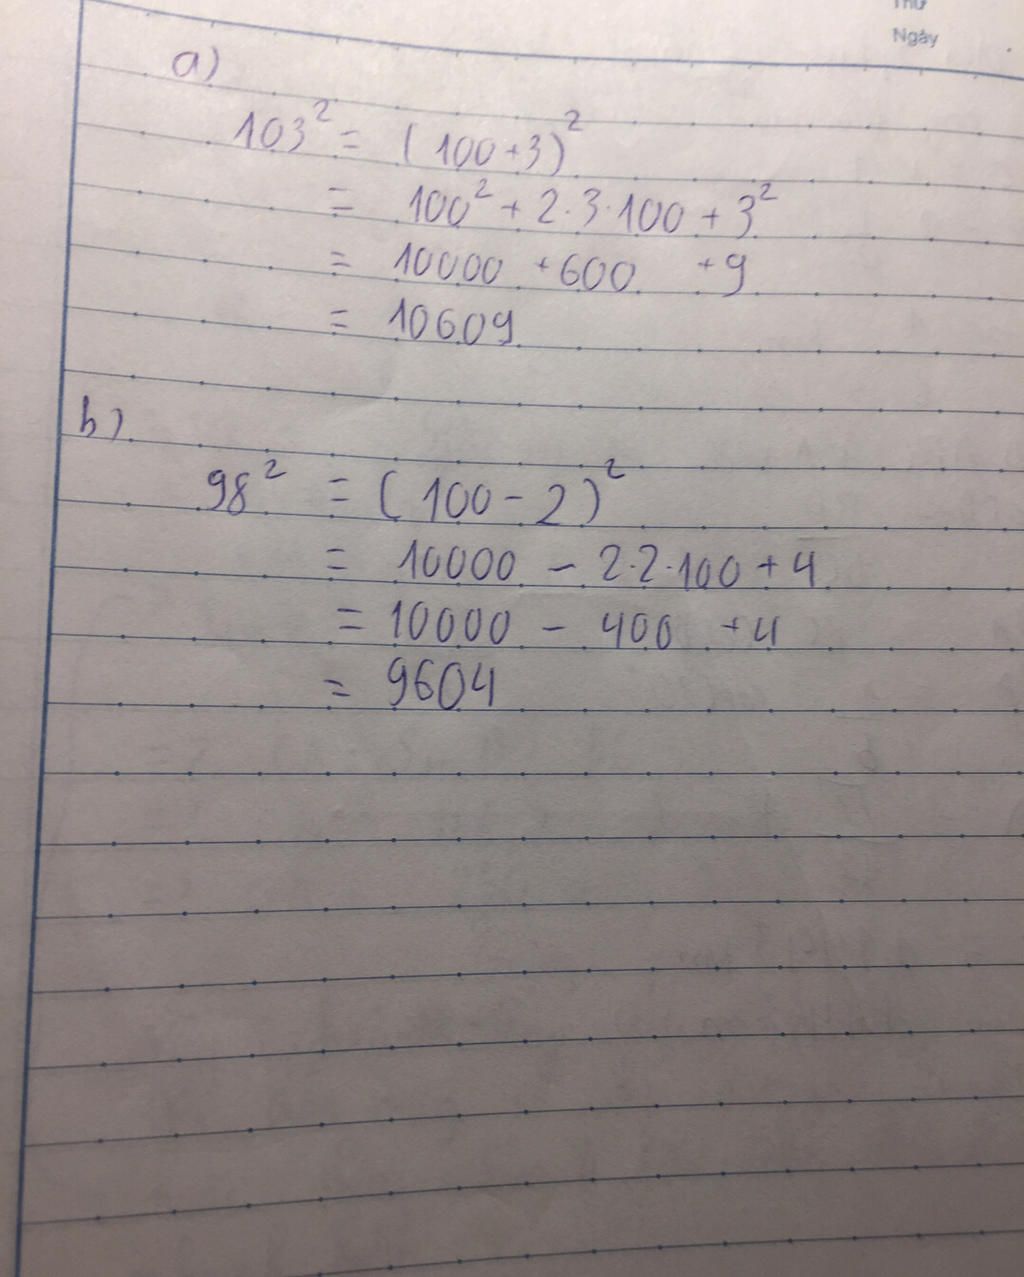 Thứ
Ngày
a)
103² = (100+3)²
= 100² + 2.3.100 + 3²
= 10000 + 600 + 9
= 10609
b)
98² = (100 - 2)²
= 10000 - 2.2.100 + 4
= 10000 - 400 + 4
= 9604